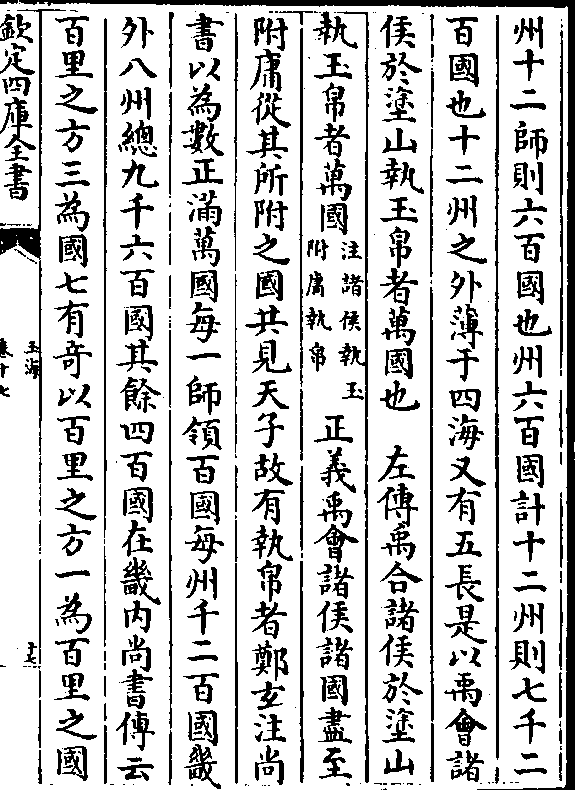 州十二師則六百國也州六百國計十二州則七千二
百國也十二州之外薄于四海又有五長是以禹會諸
侯於塗山執玉帛者萬國也　左傳禹合諸侯於塗山
執玉帛者萬國注諸侯執玉附庸執帛　正義禹會諸侯諸國盡至
附庸從其所附之國共見天子故有執帛者鄭玄注尚
書以為數正滿萬國每一師領百國每州千二百國畿
外八州總九千六百國其餘四百國在畿内尚書傳云
百里之方三為國七有奇以百里之方一為百里之國
欽定四庫全書
玉海
卷十七